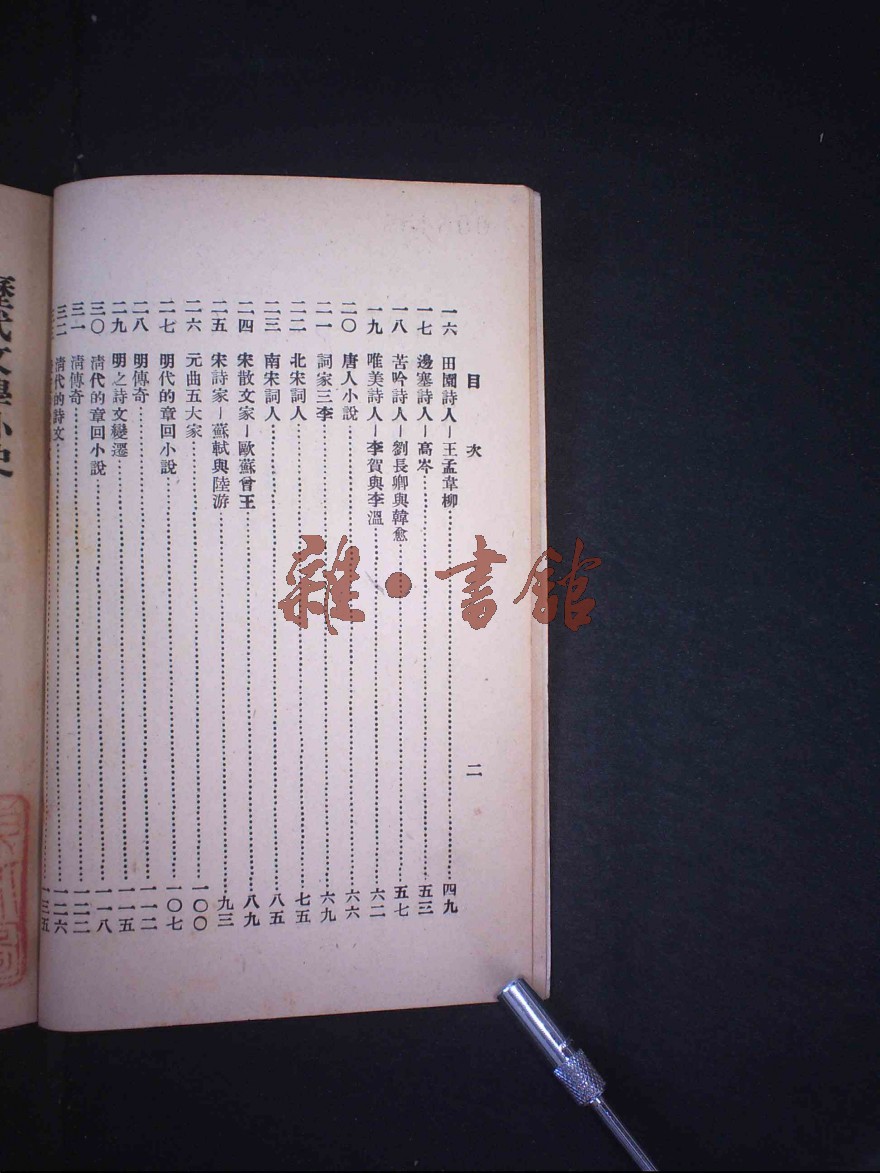 目次
二
一六 田園詩人—王孟韋柳 四九
一七 邊塞詩人—高岑 五三
一八 苦吟詩人—劉長卿與韓愈 五七
一九 唯美詩人—李賀與李溫 六二
二〇 唐人小說 六六
二一 詞家三李 六九
二二 北宋詞人 七五
二三 南宋詞人 八五
二四 宋散文家—歐蘇曾王 八九
二五 宋詩家—蘇軾與陸游 九三
二六 元曲五大家 一〇〇
二七 明代的章回小說 一〇七
二八 明傳奇 一一二
二九 明之詩文變遷 一一五
三〇 清代的章回小說 一一八
三一 清傳奇 一二二
三二 清代的詩文 一二六
一三五
歷代文學小史
雜·書館